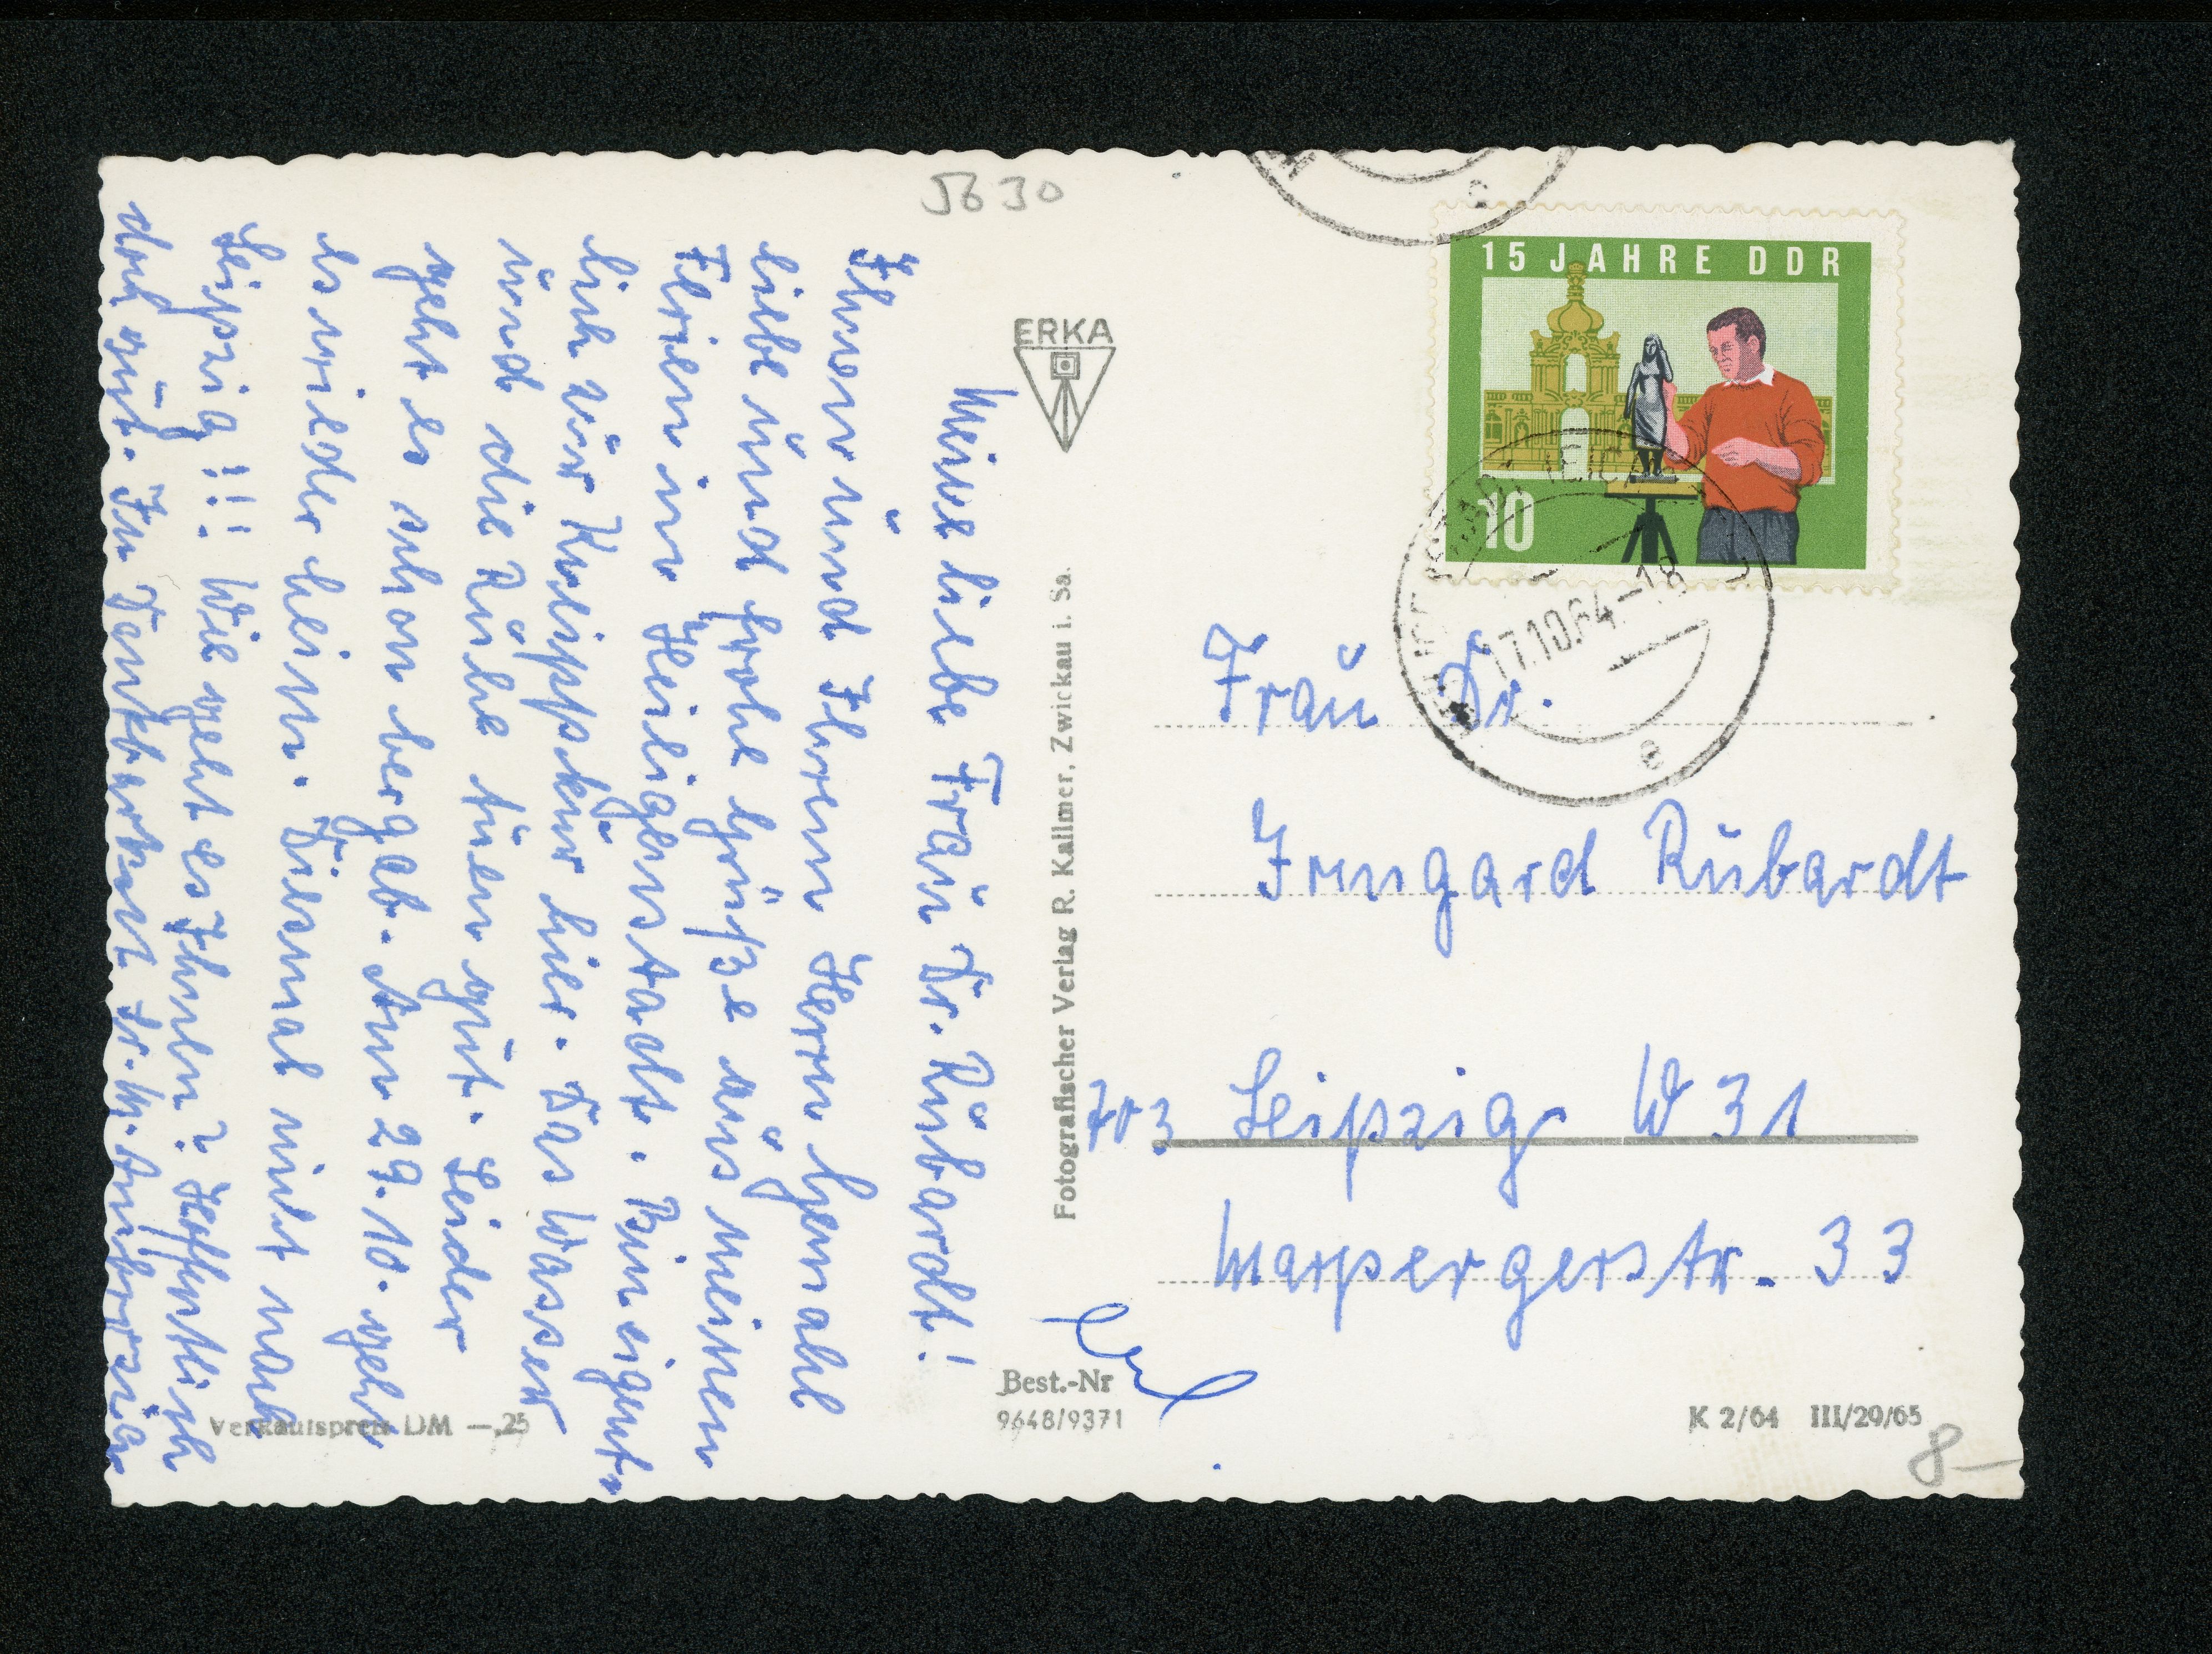 5630
Meine liebe Frau Dr. Rubardt!
Ihnen und Ihrem Herrn Gemahl
liebe und frohe Grüße aus meinen
Ferien in Heiligenstadt. Bin eigent-
lich zur Kneippkur hier. Das Wasser
und die Ruhe tuen gut. Leider
geht es schon bergab. Am 29.10. geht
es wieder heim. Diesmal nicht nach
Leipzig!!! Wie geht es Ihnen? Hoffentlich
doch gut. In Dankbarkeit Sr. M.
ERKA
Fotografischer Verlag R. Kallmer, Zwickau i. Sa.
Verkaufspreis DM —,25
Best.-Nr
9648/9371
15 JAHRE DDR
10
17.10.64-18
a
Frau Dr.
Irmgard Rubardt
703 Leipzig W 31
Marpergerstr. 33
K 2/64 III/29/65
8–